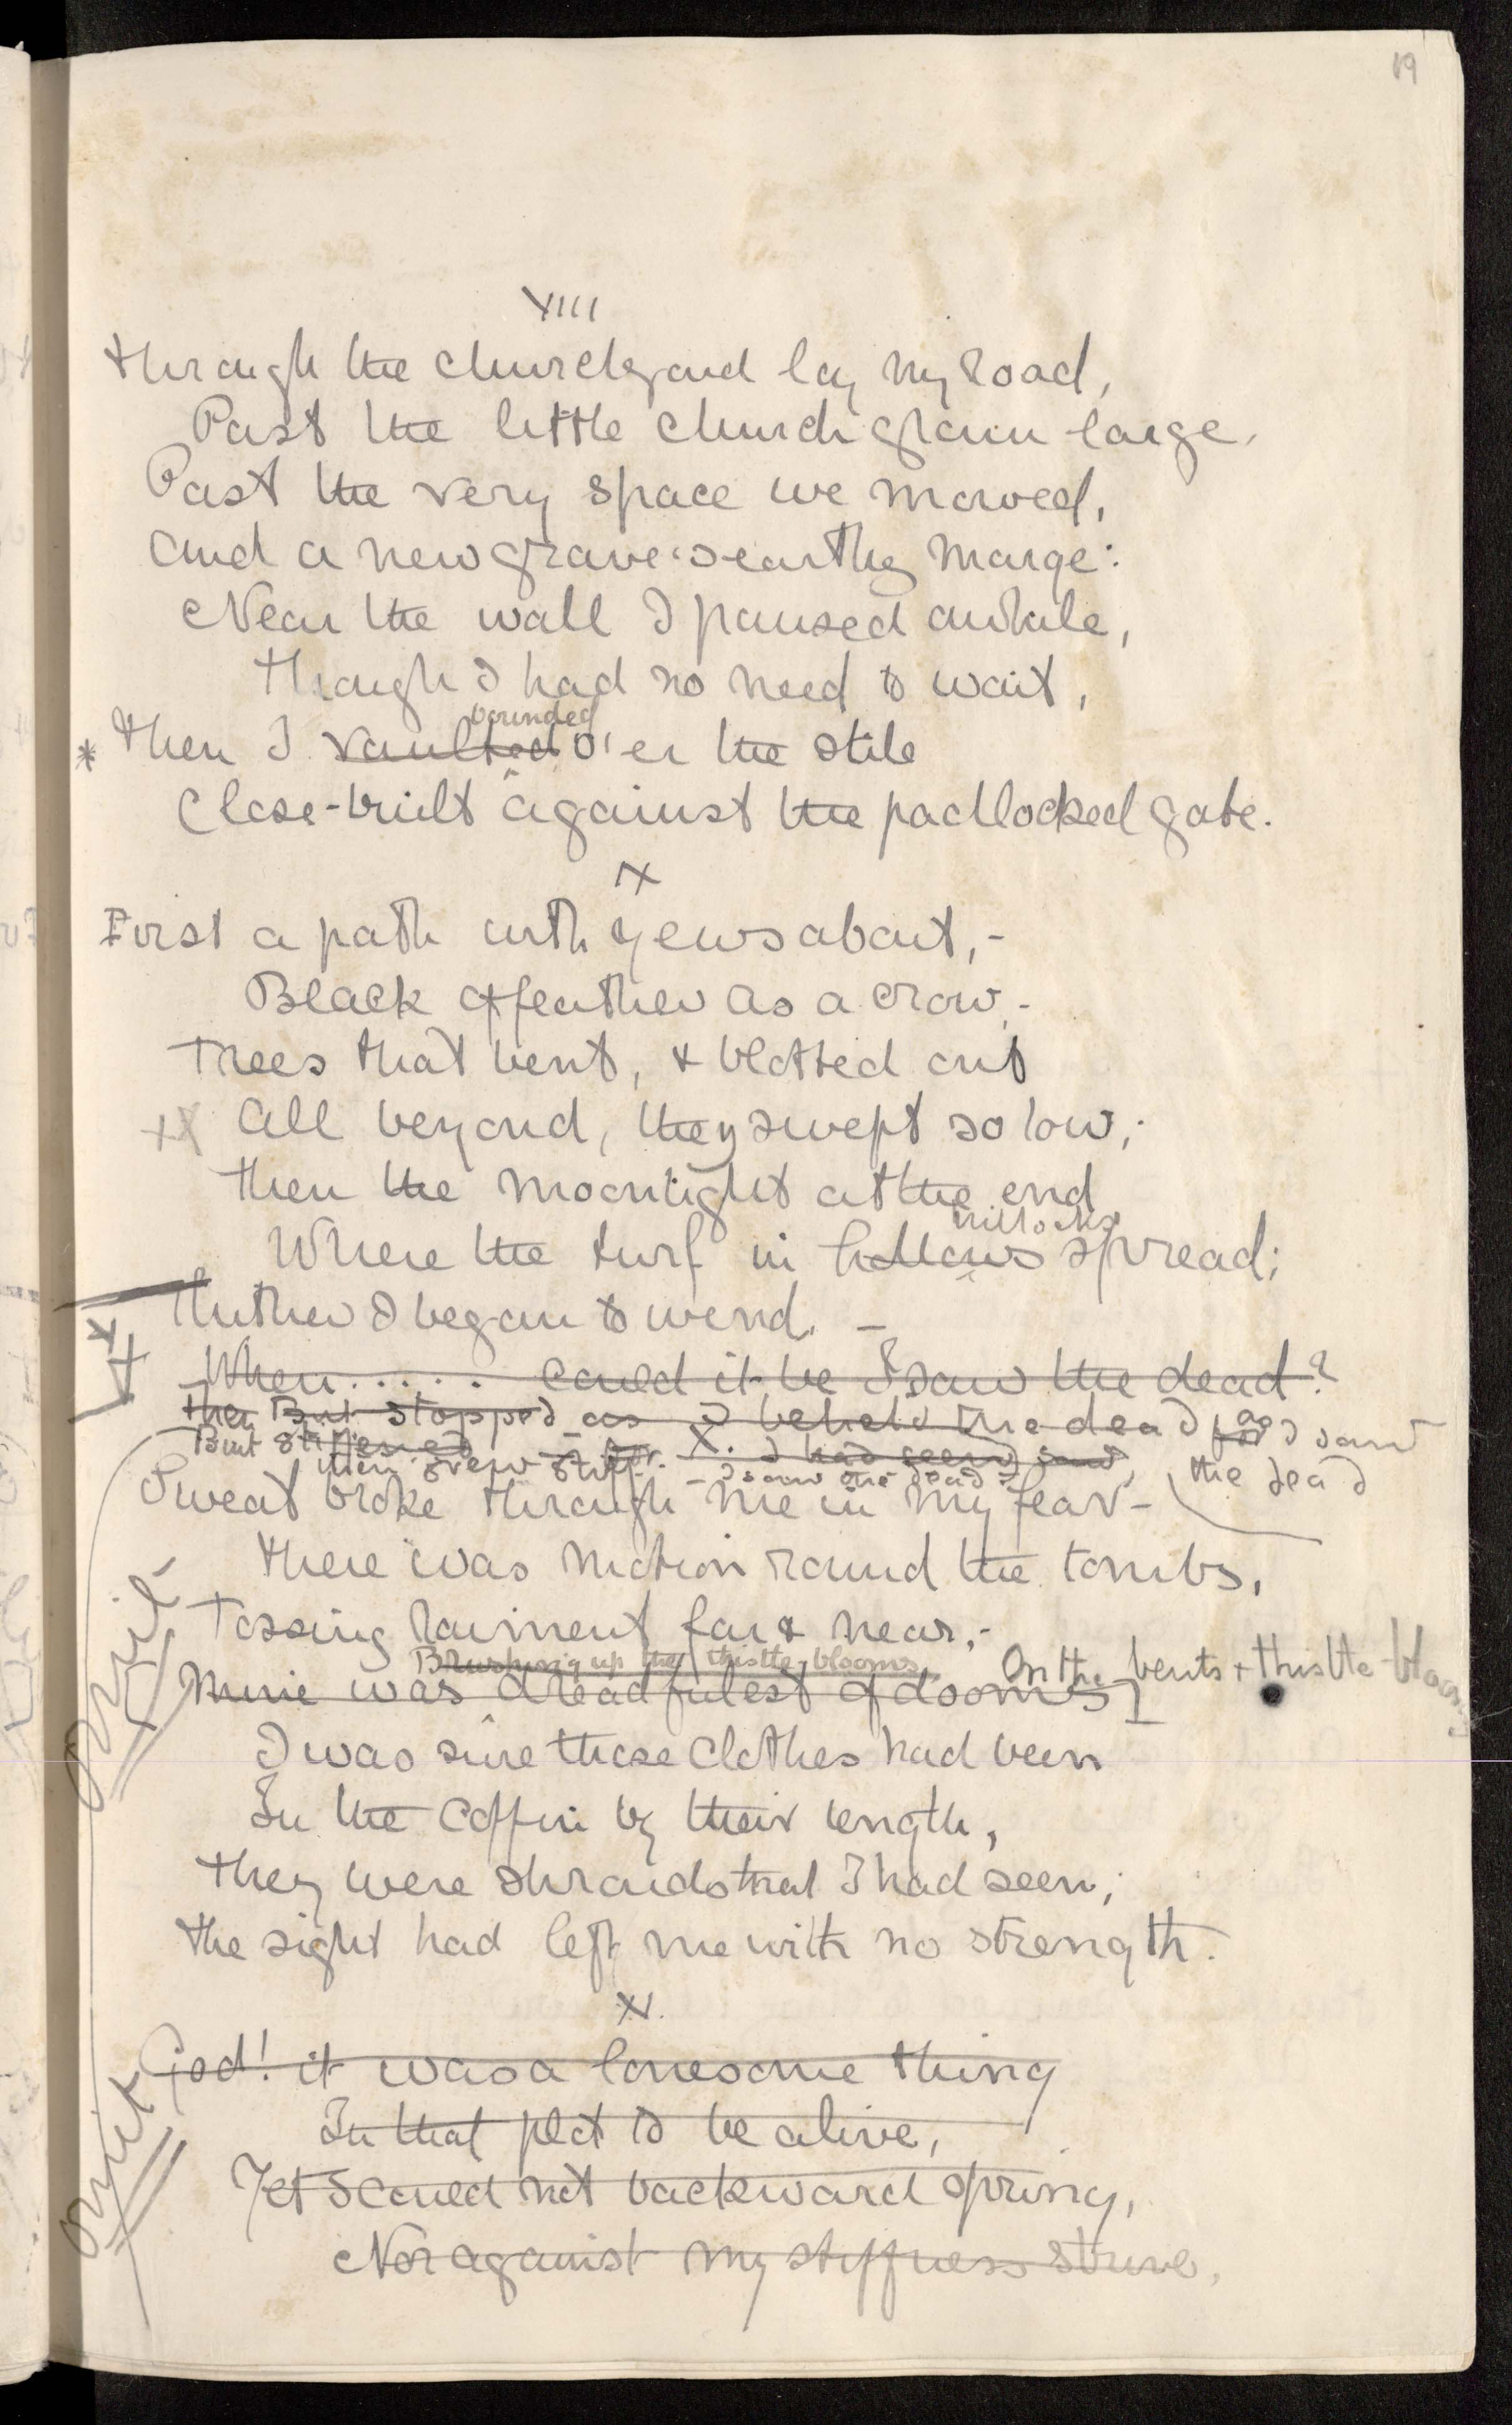 19
XIII
Through the churchyard lay my road,
Past the little church grown large,
Past the very space we mowed,
And a new grave's earthy marge:
Near the wall I paused awhile,
Though I had no need to wait,
bounded
* Then I vaulted o'er the stile
Close-built against the padlocked gate.
IX
First a path with yews about, -
Black of feather as a crow, -
Trees that bent, & blotted out
All beyond, they swept so low;
Then the moonlight at the end
hillocks
Where the turf in hollows spread;
Thither I began to wend. -
When..... Could it be I saw the dead?
Then But stopped as I beheld the dead for as I saw
But stiffened X. I had seen saw, the dead
then grew stiff. - I saw the dead -
Sweat broke through me in my fear -
There was motion round the tombs,
Tossing raiment far & near, -
Brushing up the thistle-blooms On the bents & thistle-blooms
Mine was dreadfulest of dooms
I was sure those clothes had been
In the coffin by their length,
They were shrouds that I had seen;
The sight had left me with no strength.
omit
X.
God! it was a lonesome thing
In that plot to be alive,
Yet I could not backward spring,
Nor against my stiffness strive,
omit